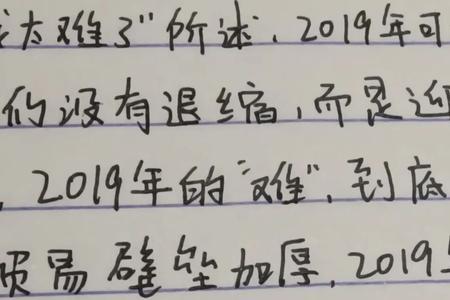 太难了"所述，2019年可
们没有退缩，而是迎
，2019年的"难"，到底
贸易壁垒加厚，2019